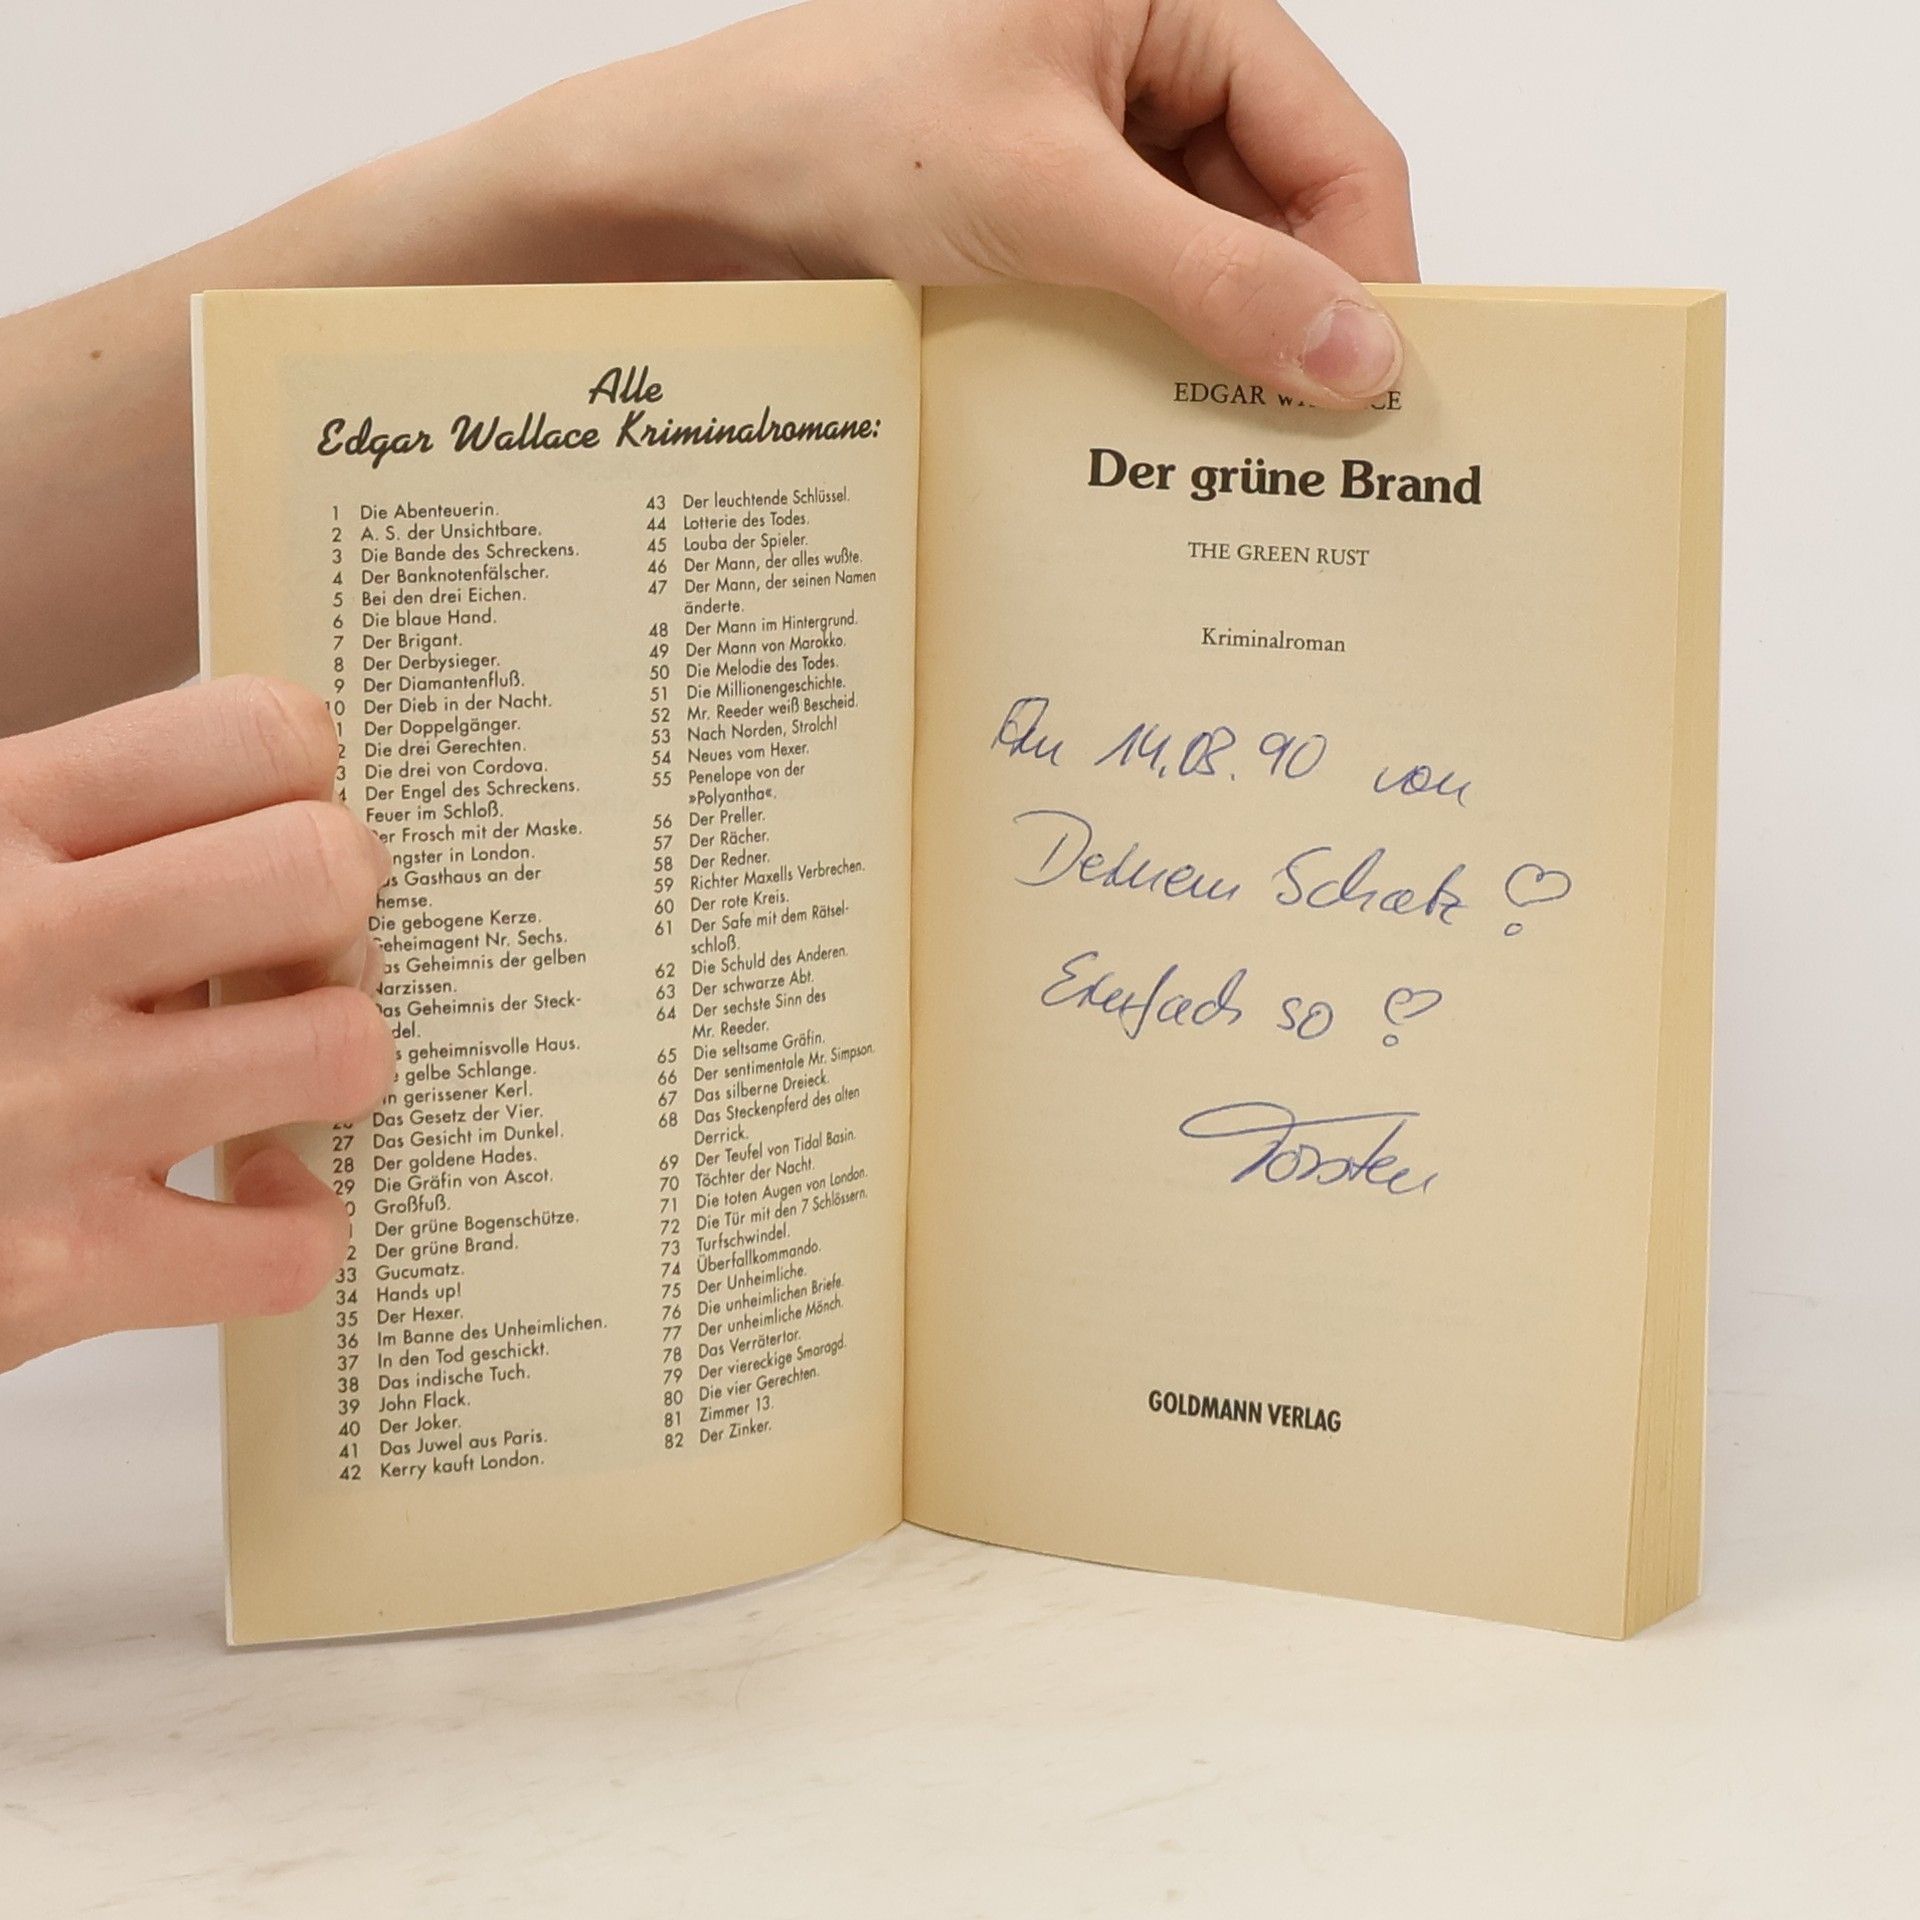 Alle
Edgar Wallace Kriminalromane:
1 Die Abenteuerin.
2 A. S. der Unsichtbare.
3 Die Bande des Schreckens.
4 Der Banknotenfälscher.
5 Bei den drei Eichen.
6 Die blaue Hand.
7 Der Brigant.
8 Der Derbysieger.
9 Der Diamantenfluß.
10 Der Dieb in der Nacht.
1 Der Doppelgänger.
2 Die drei Gerechten.
3 Die drei von Cordova.
4 Der Engel des Schreckens.
Feuer im Schloß.
er Frosch mit der Maske.
ngster in London.
s Gasthaus an der
hemse.
Die gebogene Kerze.
eheimagent Nr. Sechs.
as Geheimnis der gelben
arzissen.
as Geheimnis der Steck-
del.
s geheimnisvolle Haus.
e gelbe Schlange.
in gerissener Kerl.
Das Gesetz der Vier.
27 Das Gesicht im Dunkel.
28 Der goldene Hades.
29 Die Gräfin von Ascot.
0 Großfuß.
1 Der grüne Bogenschütze.
2 Der grüne Brand.
33 Gucumatz.
34 Hands up!
35 Der Hexer.
36 Im Banne des Unheimlichen.
37 In den Tod geschickt.
38 Das indische Tuch.
39 John Flack.
40 Der Joker.
41 Das Juwel aus Paris.
42 Kerry kauft London.
43 Der leuchtende Schlüssel.
44 Lotterie des Todes.
45 Louba der Spieler.
46 Der Mann, der alles wußte.
47 Der Mann, der seinen Namen
änderte.
48 Der Mann im Hintergrund.
49 Der Mann von Marokko.
50 Die Melodie des Todes.
51 Die Millionengeschichte.
52 Mr. Reeder weiß Bescheid.
53 Nach Norden, Strolch!
54 Neues vom Hexer.
55 Penelope von der
»Polyantha«.
56 Der Preller.
57 Der Rächer.
58 Der Redner.
59 Richter Maxells Verbrechen.
60 Der rote Kreis.
61 Der Safe mit dem Rätsel-
schloß.
62 Die Schuld des Anderen.
63 Der schwarze Abt.
64 Der sechste Sinn des
Mr. Reeder.
65 Die seltsame Gräfin.
66 Der sentimentale Mr. Simpson.
67 Das silberne Dreieck.
68 Das Steckenpferd des alten
Derrick.
69 Der Teufel von Tidal Basin.
70 Töchter der Nacht.
71 Die toten Augen von London.
72 Die Tür mit den 7 Schlössern.
73 Turfschwindel.
74 Überfallkommando.
75 Der Unheimliche.
76 Die unheimlichen Briefe.
77 Der unheimliche Mönch.
78 Das Verrätertor.
79 Der viereckige Smaragd.
80 Die vier Gerechten.
81 Zimmer 13.
82 Der Zinker.
EDGAR
Der grüne Brand
THE GREEN RUST
Kriminalroman
Am 14.08.90 von
Deinem Schatz
Einfach so
Torsten
GOLDMANN VERLAG